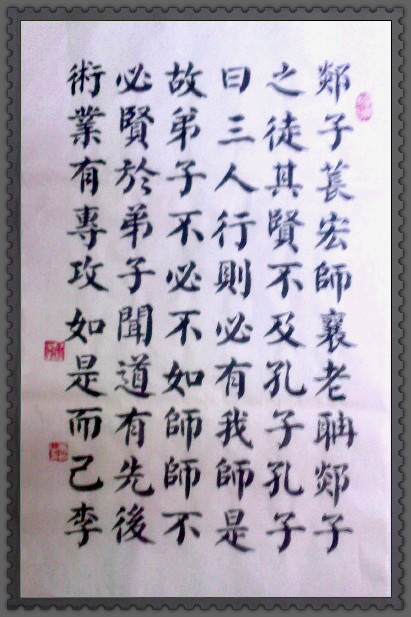 郯子萇宏師襄老聃郯子
之徒其賢不及孔子孔子
曰三人行則必有我師是
故弟子不必不如師師不
必賢於弟子聞道有先後
術業有專攻如是而已李